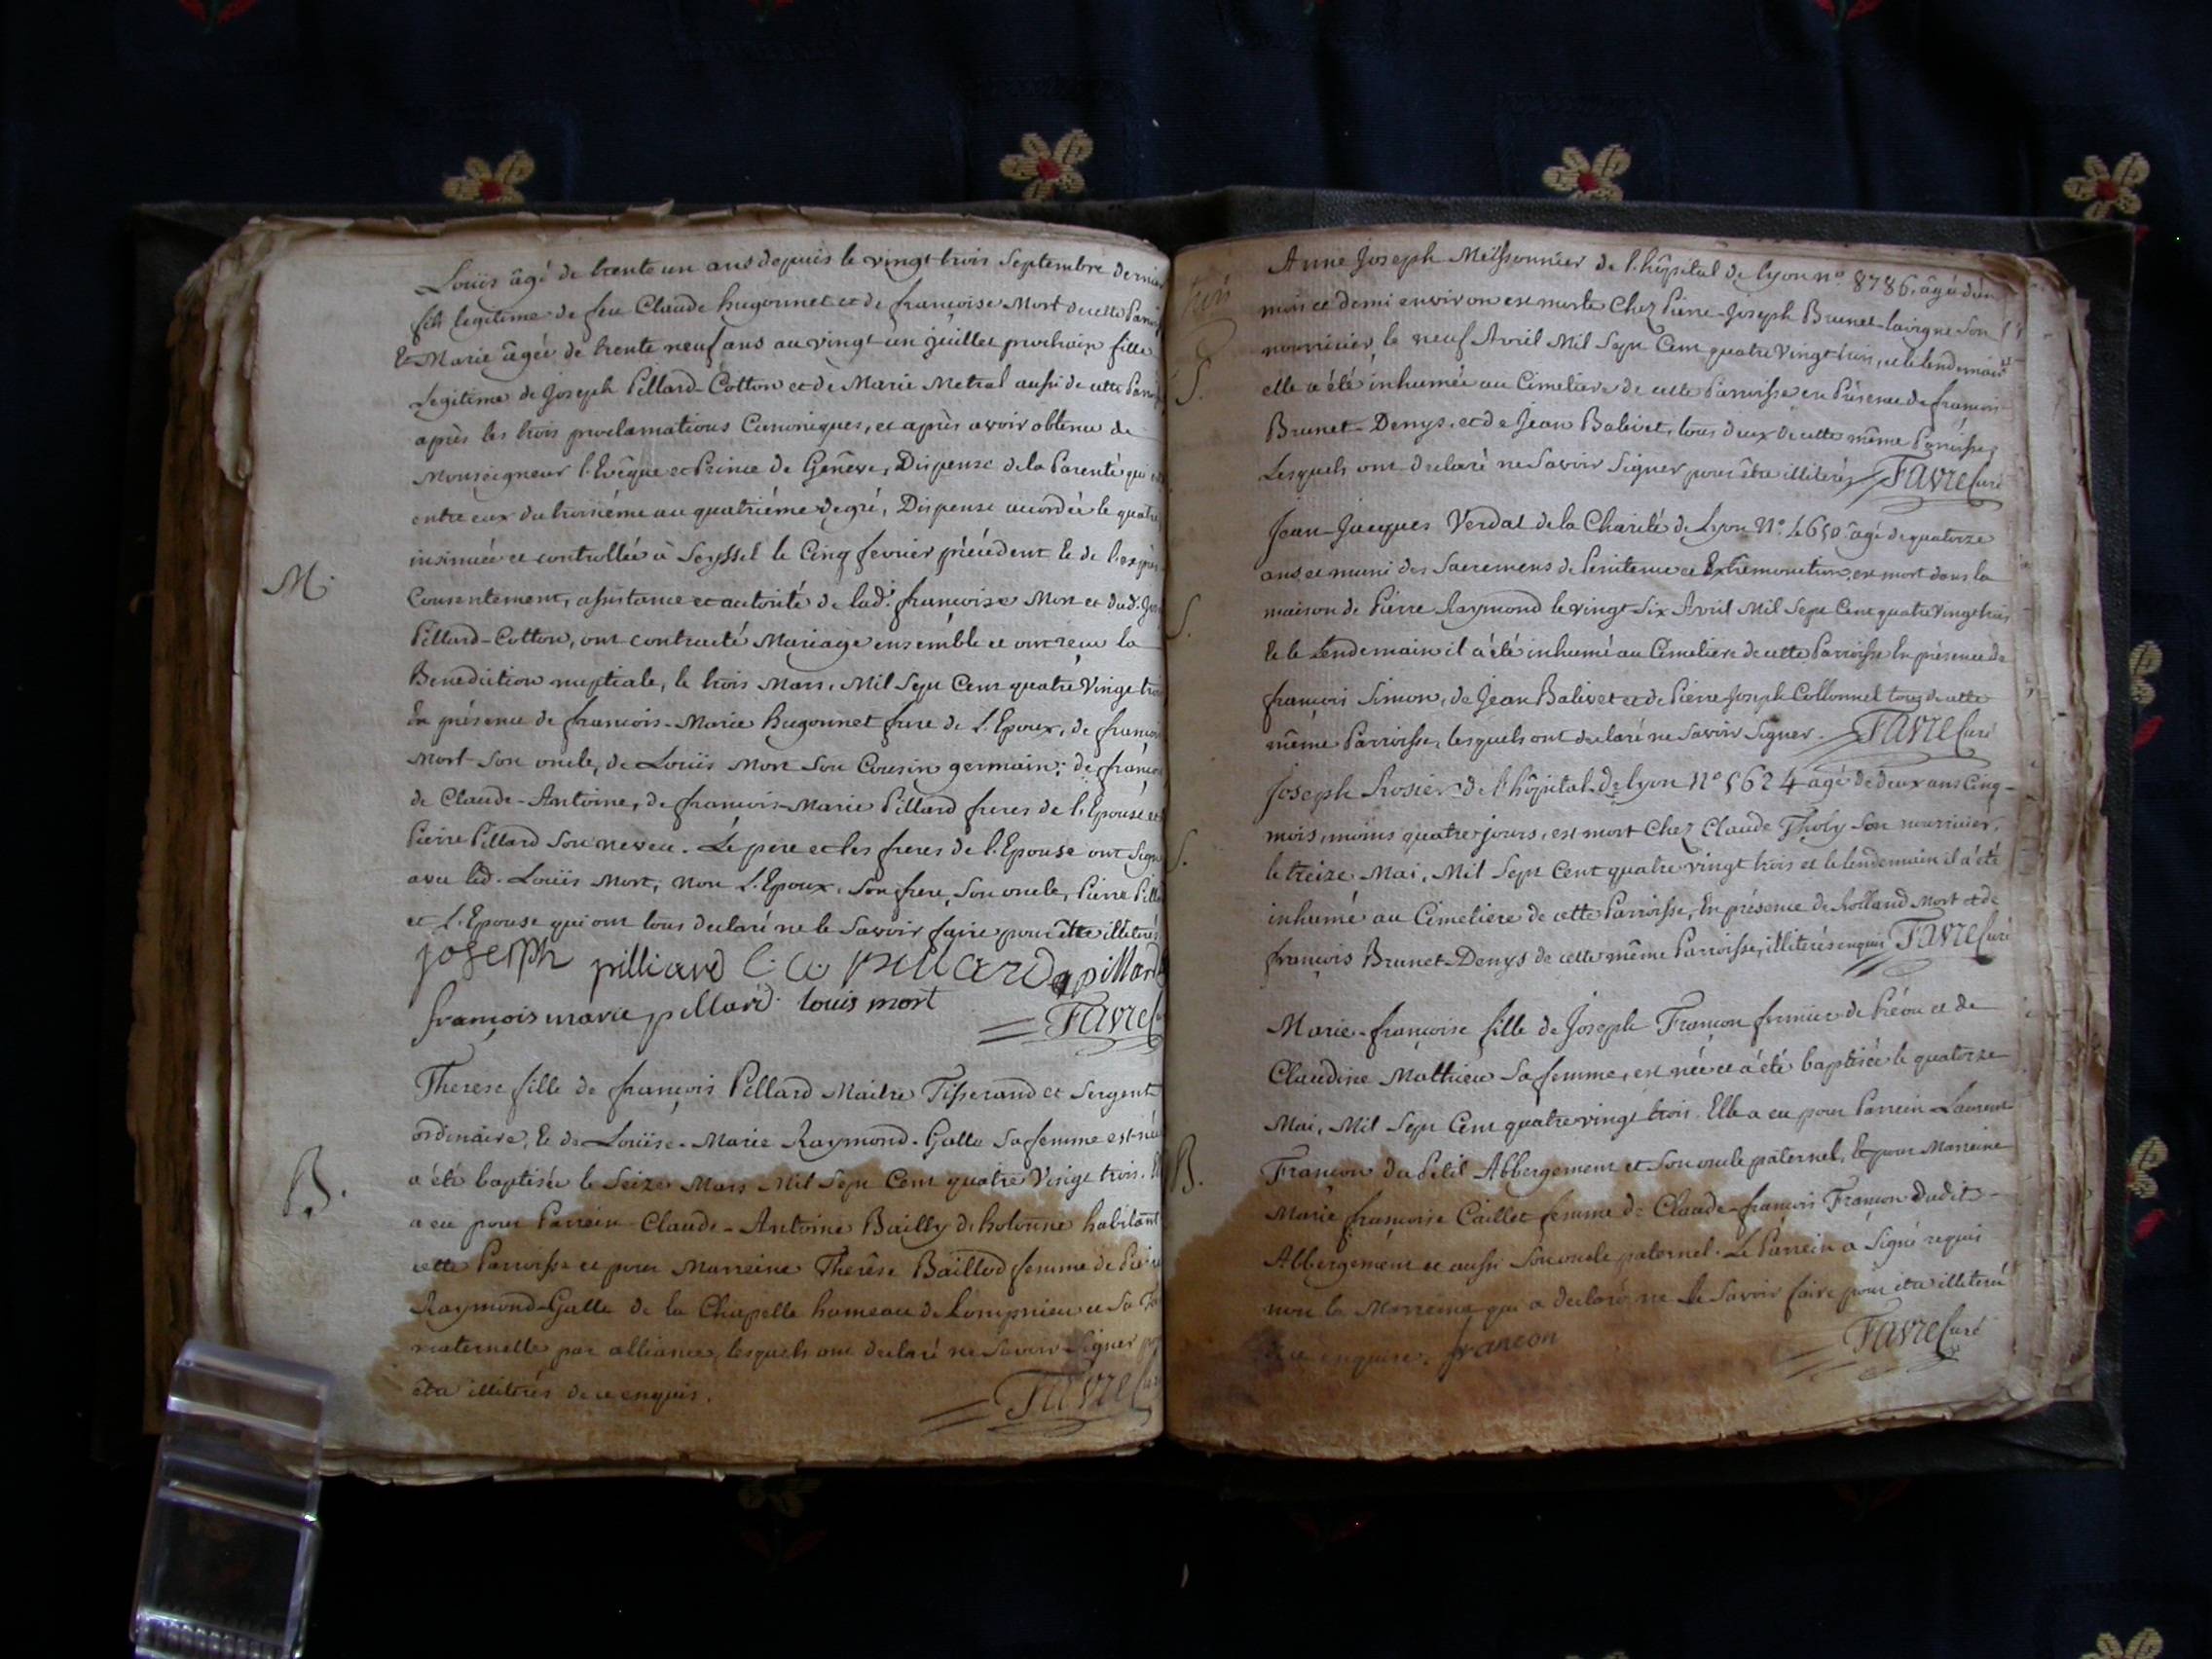 Loüis âgé de trente un ans depuis le vingt trois Septembre dernier
fils legitime de feu Claude hugonnet et de françoise Mort de cette
Et Marie âgée de trente neuf ans au vingt un juillet prochain fille
Legitime de Joseph Pillard-Cotton et de Marie Metral aussi de cette
après les trois proclamations Canoniques, et après avoir obtenu de
Monseigneur l'Evêque et Prince de Genève, Dispense de la Parenté qui
entre eux du troisiéme au quatriéme degré, Dispense accordée le quatre
insinuée et controllée à Seyssel le Cinq fevrier précédent Et de l'exprès
M.
Consentement, assistance et autorité de lad.e françoise Mort et dud.
Pillard-Cotton, ont contracté Mariage ensemble et ont reçu la
Benediction nuptiale, le trois Mars, Mil Sept Cent quatre Vingt
En présence de francois-Marie hugonnet frere de l'Epoux, de françois
Mort Son oncle, de Loüis Mort Son Cousin germain; de françois
de Claude-Antoine, de francois-Marie Pillard freres de l'Epouse et
Pierre Pillard Son neveu. Le pere et les freres de l'Epouse ont Signé
avec led. Loüis Mort, non l'Epoux, Son frere, Son oncle, Pierre
et l'Epouse qui ont tous declaré ne le Savoir faire pour être illiterés
joseph pilliard C. A. pillard pillard
françois marie pillard louis mort
Favre
Therese fille de françois Pillard Maitre Tisserand et Sergent
ordinaire, Et de Loüise-Marie Raymond-Galle Sa femme est née
B.
a été baptisée le Seize Mars Mil Sept Cent quatre Vingt trois.
a eu pour Parrein Claude-Antoine Bailly de hotonne habitant
cette Parroisse et pour Marreine Therêse Baillod femme de
Raymond-Galle de la Chapelle hameau de Lompnieu et Sa
maternelle par alliance, lesquels ont declaré ne Savoir Signer
être illiterés de ce enquis.
Favre
Anne Joseph Meissonnier de l'hôpital de lyon n.o 8786, âgé d'un
mois et demi environ est morte Chez Pierre-Joseph Brunet-lavigne Son
nourricier, le neuf Avril Mil Sept Cent quatre Vingt trois, et le lendemain
S.
elle a été inhumée au Cimetiere de cette Parroisse en Présence de françois
Brunet-Denys, et de Jean Balivet, tous deux de cette même Parroisse,
Lesquels ont declaré ne Savoir Signer pour être illiterés Favre Curé
Jean-Jacques Verdat de la Charité de Lyon N.o 4650 âgé de quatorze
ans, et muni des Sacremens de Penitence et Extrêmonction, est mort dans la
S.
maison de Pierre Raymond le vingt Six Avril Mil Sept Cent quatre Vingt trois
Et le Lendemain il a été inhumé au Cimetiere de cette Parroisse En présence de
françois Simon, de Jean Balivet et de Pierre-Joseph Collonnel tous de cette
même Parroisse, lesquels ont declaré ne Savoir Signer. Favre Curé
Joseph Rosier de l'hôpital de lyon N.o 5624 agé de deux ans Cinq
mois, moins quatre jours, est mort Chez Claude Tholy Son nourricier,
S.
le treize Mai, Mil Sept Cent quatre vingt trois et le lendemain il a été
inhumé au Cimetiere de cette Parroisse, En présence de Rolland Mort et de
françois Brunet-Denys de cette même Parroisse, illiterés enquis Favre Curé
Marie-françoise fille de Joseph Françon fermier de et de
Claudine Mathieu Sa femme, est née et a été baptisée le quatorze
Mai, Mil Sept Cent quatre vingt trois. Elle a eu pour Parrein Laurent
B.
Françon du Petit Abbergement et Son oncle paternel, Et pour Marreine
Marie françoise Caillet femme de Claude-françois Françon dudit
Abbergement et aussi Son oncle paternel. Le Parrein a Signé requis
non la Marreine qui a declaré ne le Savoir faire pour être illiteré
de ce enquise. françon Favre Curé